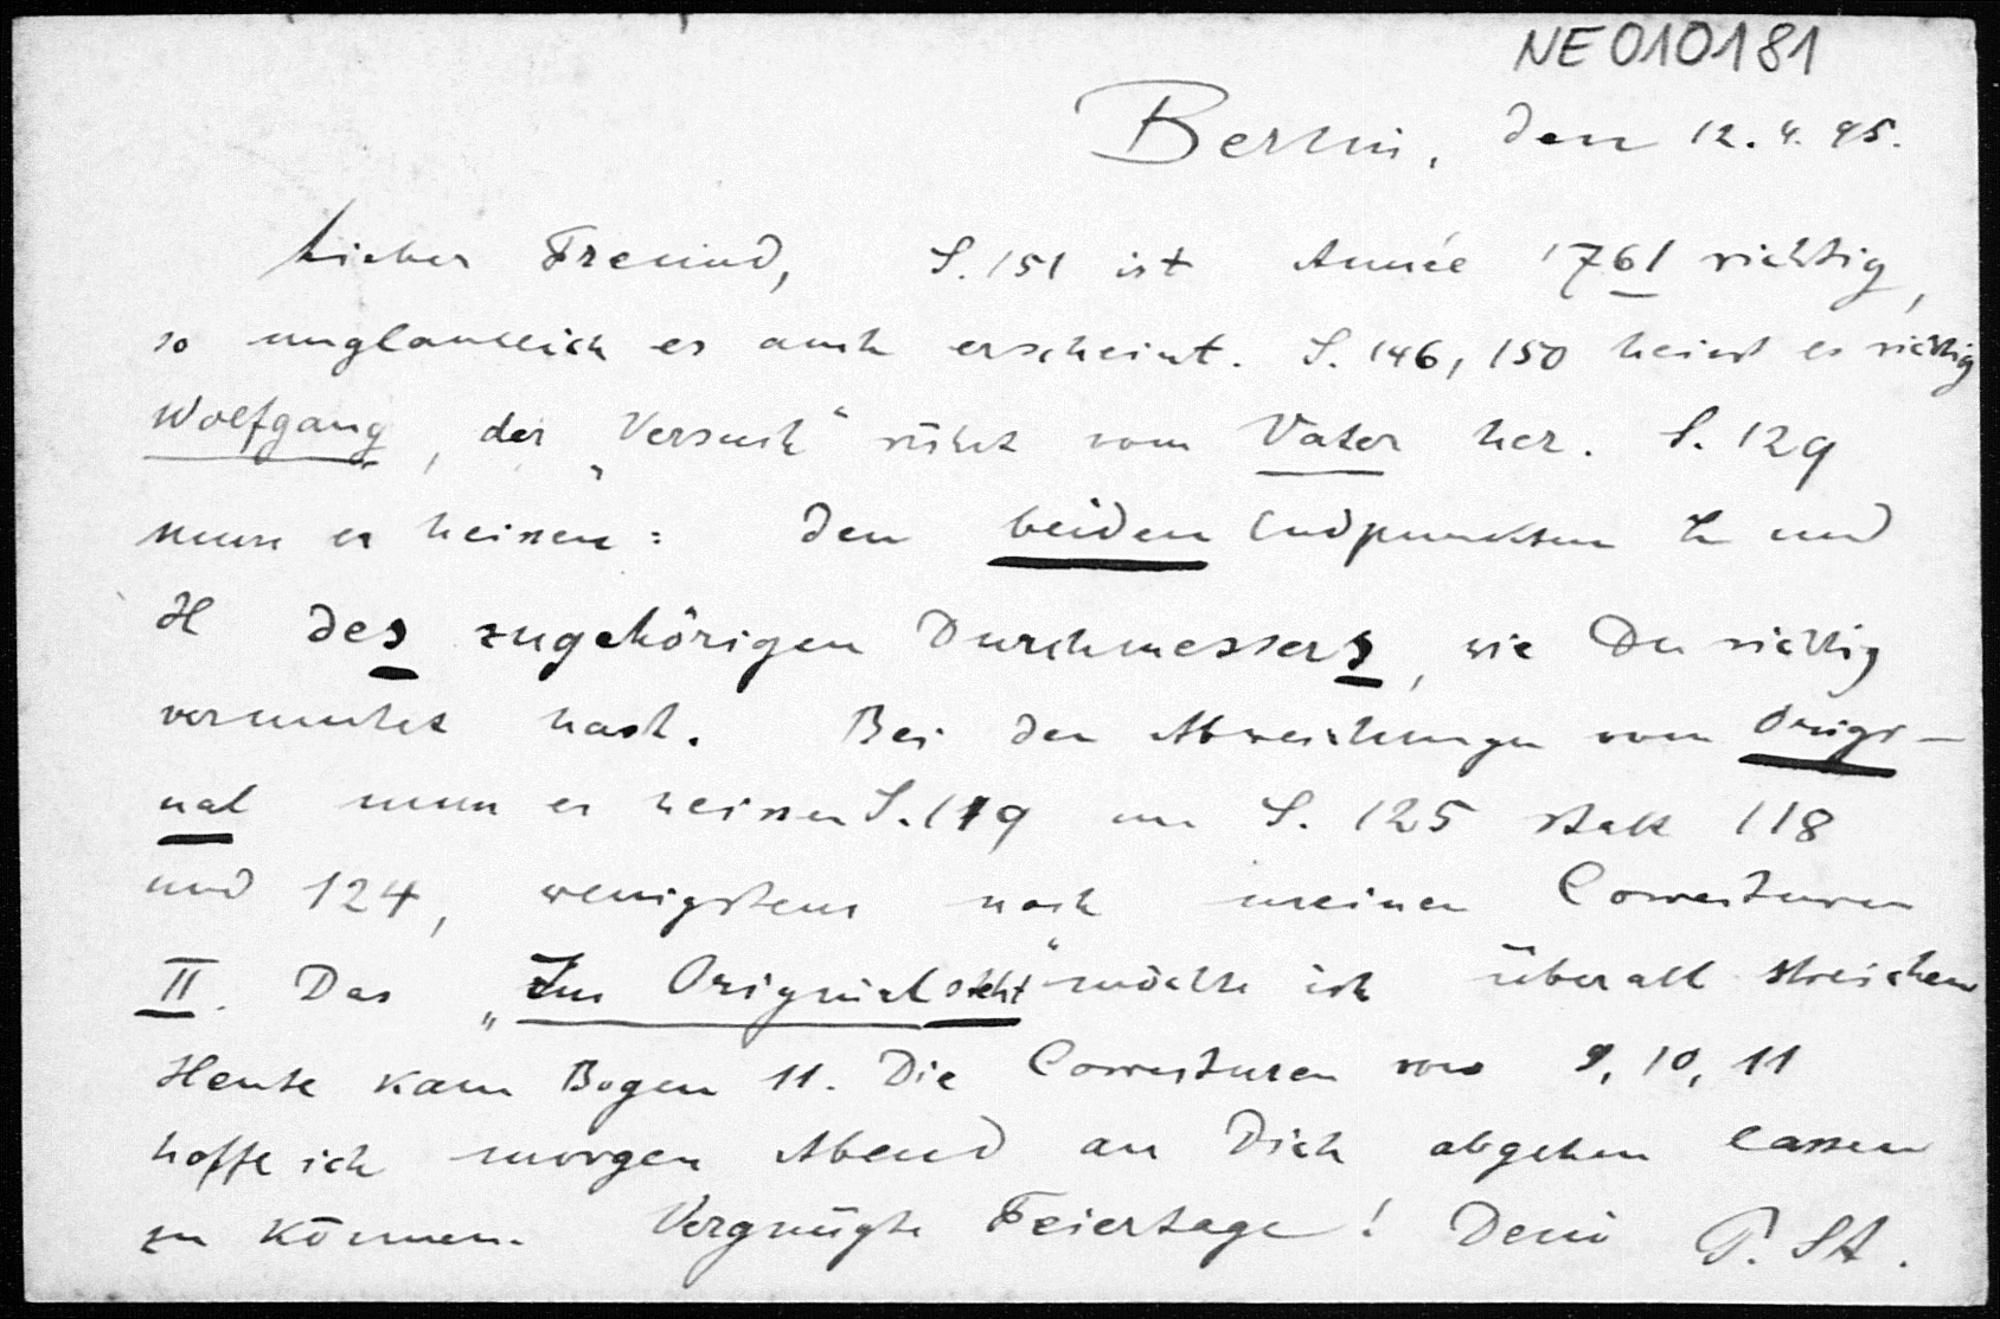 NE010181
Berlin, den 12. 4. 95.
Lieber Freund, S. 151 ist Année 1761 richtig,
so unglaublich es auch erscheint. S. 146, 150 heisst es richtig
Wolfgang, der „Versuch“ rührt vom Vater her. S. 129
muss es heissen: den beiden Endpunkten L und
H des zugehörigen Durchmessers, wie Du richtig
vermutet hast. Bei den Abweichungen vom Origi-
nal muss es heissen S. 119 und S. 125 statt 118
und 124, wenigstens nach meinen Correcturen
II. Das „Im Original steht“ möchte ich überall streichen
Heute kam Bogen 11. Die Correcturen von 9, 10, 11
hoffe ich morgen Abend an Dich abgehen lassen
zu können. Vergnügte Feiertage! Dein P. St.